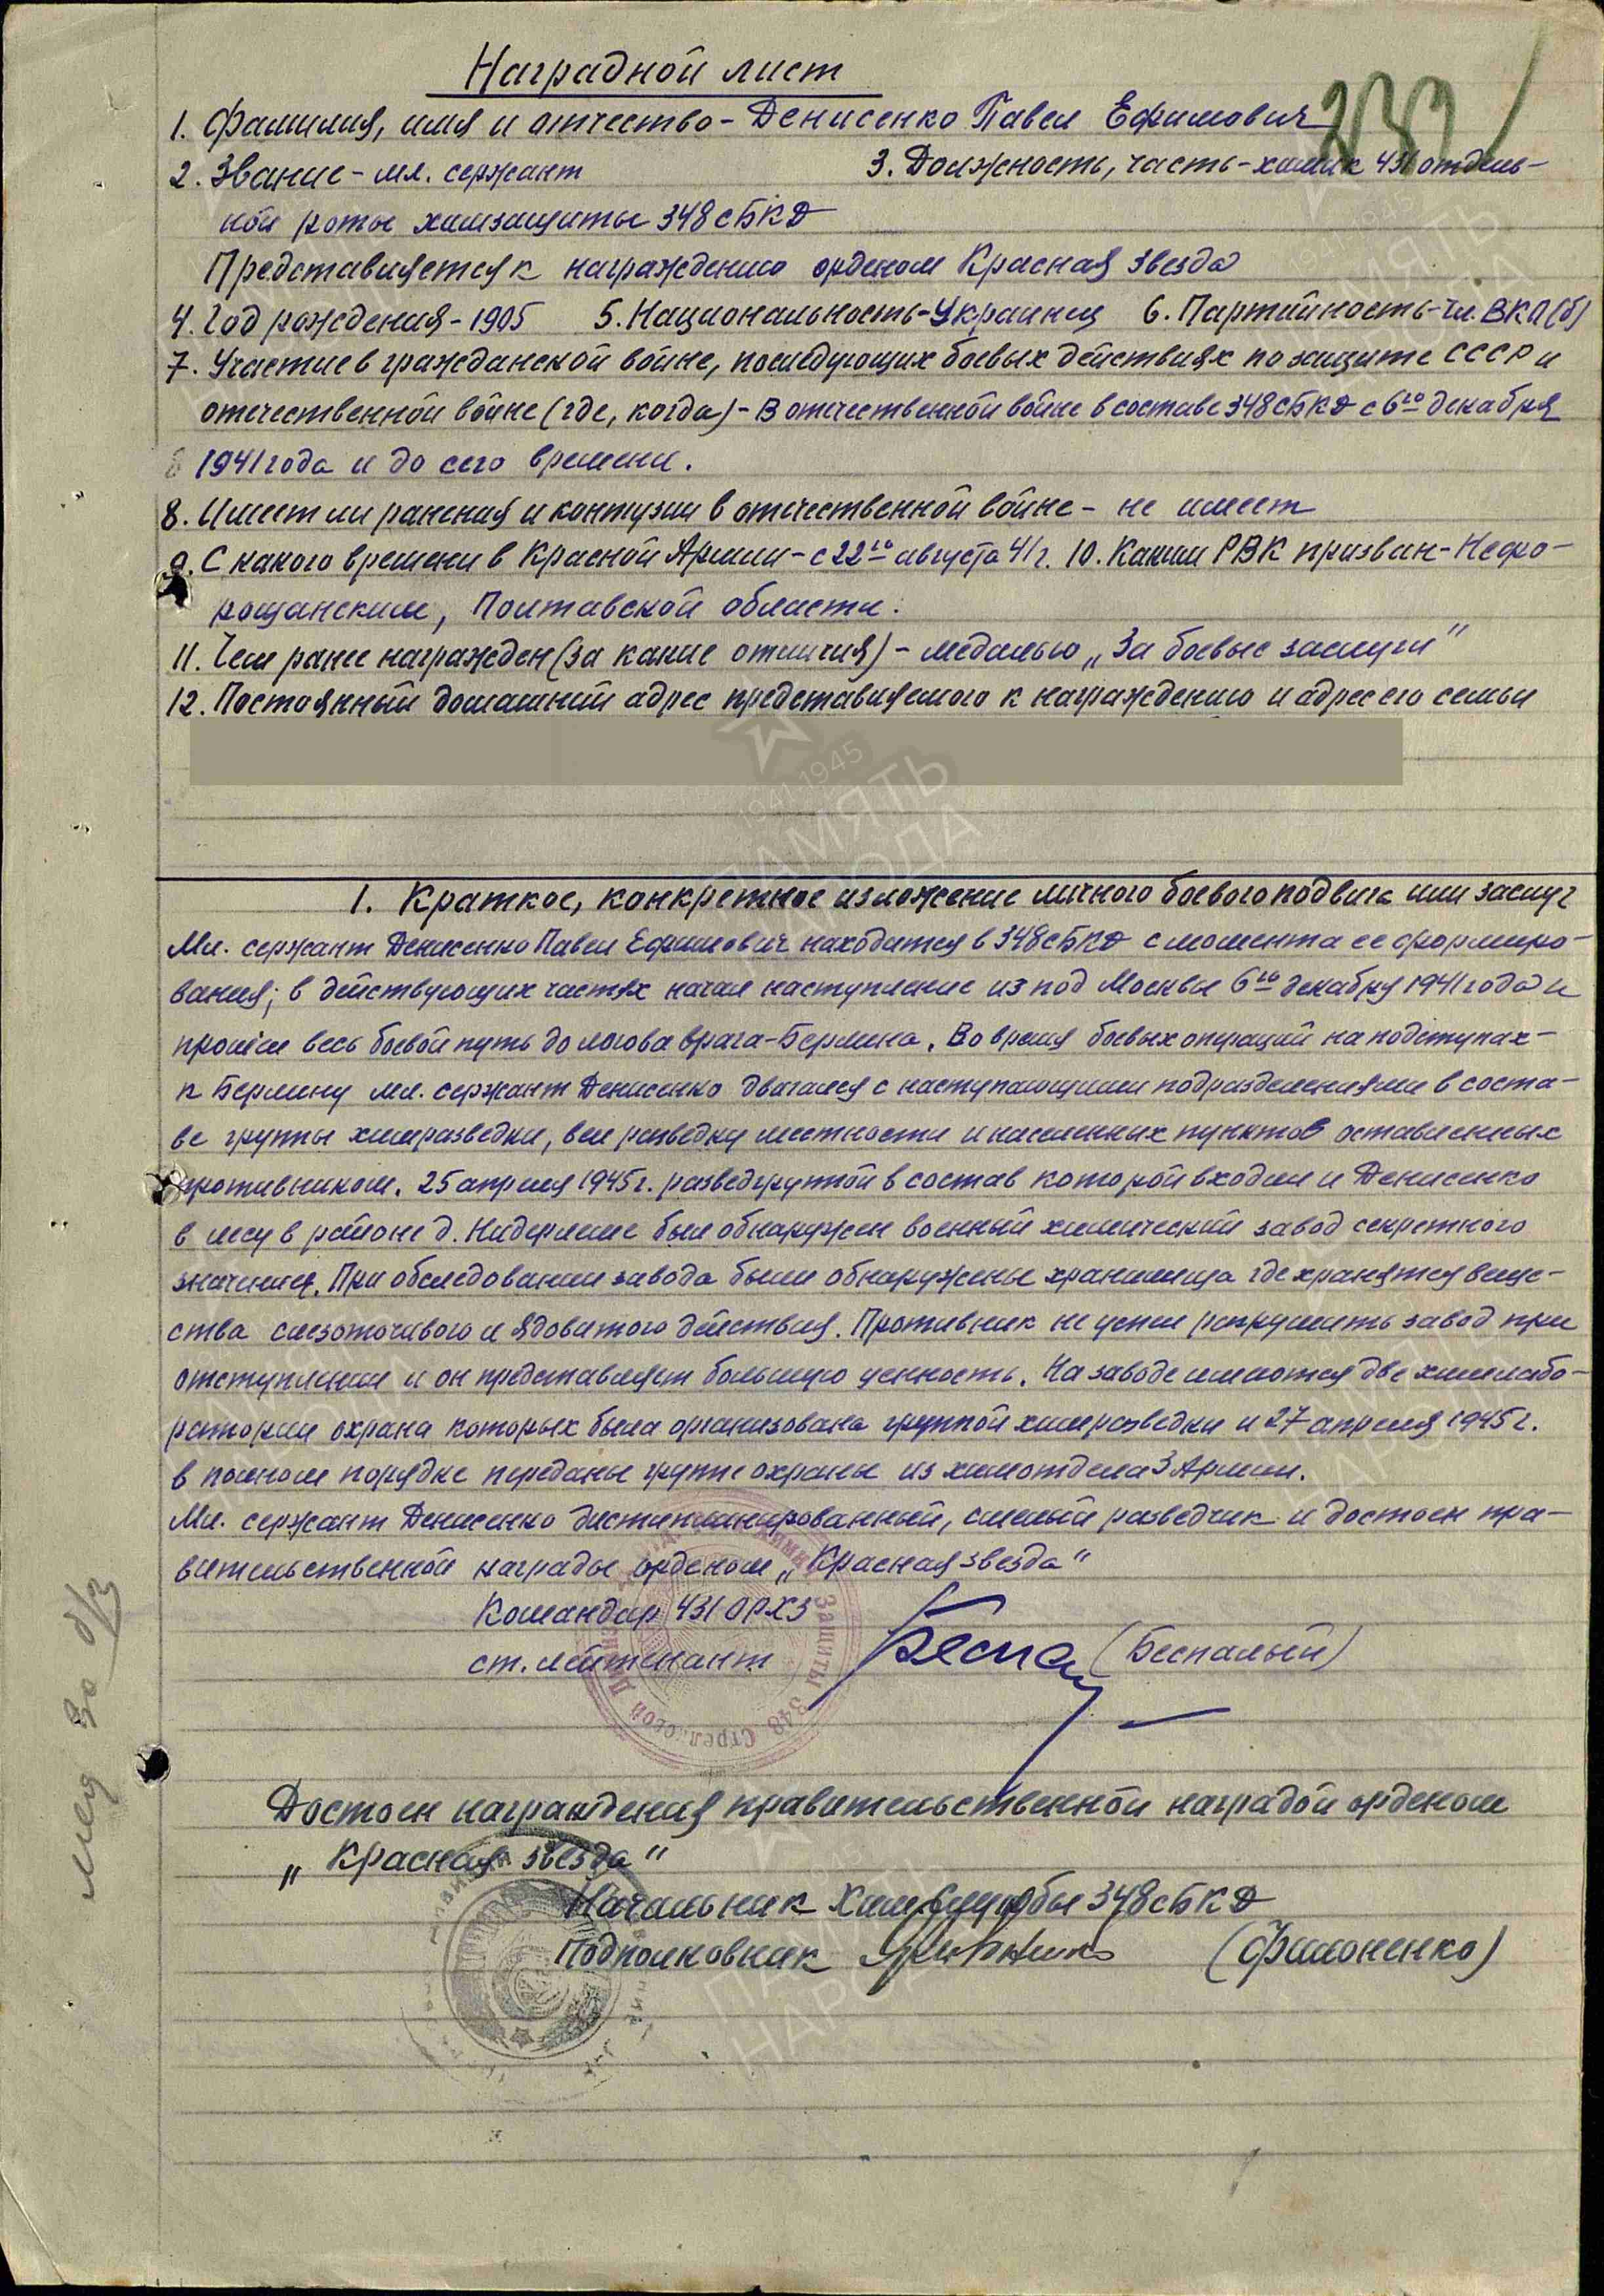 Наградной лист
1. Фамилия, имя и отчество - Денисенко Павел Ефимович
2. Звание - мл. сержант 3. Должность, часть - химик 431 отдель-
ной роты химзащиты 348 сБКД
Представляется к награждению орденом Красная звезда
4. Год рождения - 1905 5. Национальность - Украинец 6. Партийность - чл. ВКП(б)
7. Участие в гражданской войне, последующих боевых действиях по защите СССР и
отечественной войне (где, когда) - В отечественной войне в составе 348 сБКД с 6го декабря
1941 года и до сего времени.
8. Имеет ли ранения и контузии в отечественной войне - не имеет
9. С какого времени в Красной Армии - с 22го августа 41 г. 10. Каким РВК призван - Нефо-
рощанским, Полтавской области.
11. Чем ранее награжден (за какие отличия) - медалью „За боевые заслуги"
12. Постоянный домашний адрес представляемого к награждению и адрес его семьи
1941-1945
ПАМЯТЬ
НАРОДА
1. Краткое, конкретное изложение личного боевого подвига или заслуг
Мл. сержант Денисенко Павел Ефимович находится в 348 сБКД с момента ее формиро-
вания; в действующих частях начал наступление из под Москвы 6го декабря 1941 года и
прошел весь боевой путь до логова врага - Берлина. Во время боевых операций на подступах-
к Берлину мл. сержант Денисенко двигался с наступающими подразделениями в соста-
ве группы химразведки, вел разведку местности и населенных пунктов оставленных
противником. 25 апреля 1945 г. разведгруппой в состав которой входил и Денисенко
в лесу в районе д. Нидерлеме был обнаружен военный химический завод секретного
значения. При обследовании завода были обнаружены хранилища где хранятся веще-
ства слезоточивого и ядовитого действия. Противник не успел разрушить завод при
отступлении и он представляет большую ценность. На заводе имеются две химлабо-
ратории охрана которых была организована группой химразведки и 27 апреля 1945 г.
в полном порядке переданы группе охраны из химотдела 3 Армии.
Мл. сержант Денисенко дисциплинированный, смелый разведчик и достоен пра-
вительственной награды орденом „Красная звезда"
Командир 431 ОРХЗ
ст. лейтенант (Беспалый)
Защиты 348 Стрелковой
Достоен награждения правительственной наградой орденом
„Красная звезда"
Начальник Химслужбы 348 сБКД
Подполковник (Филоненко)